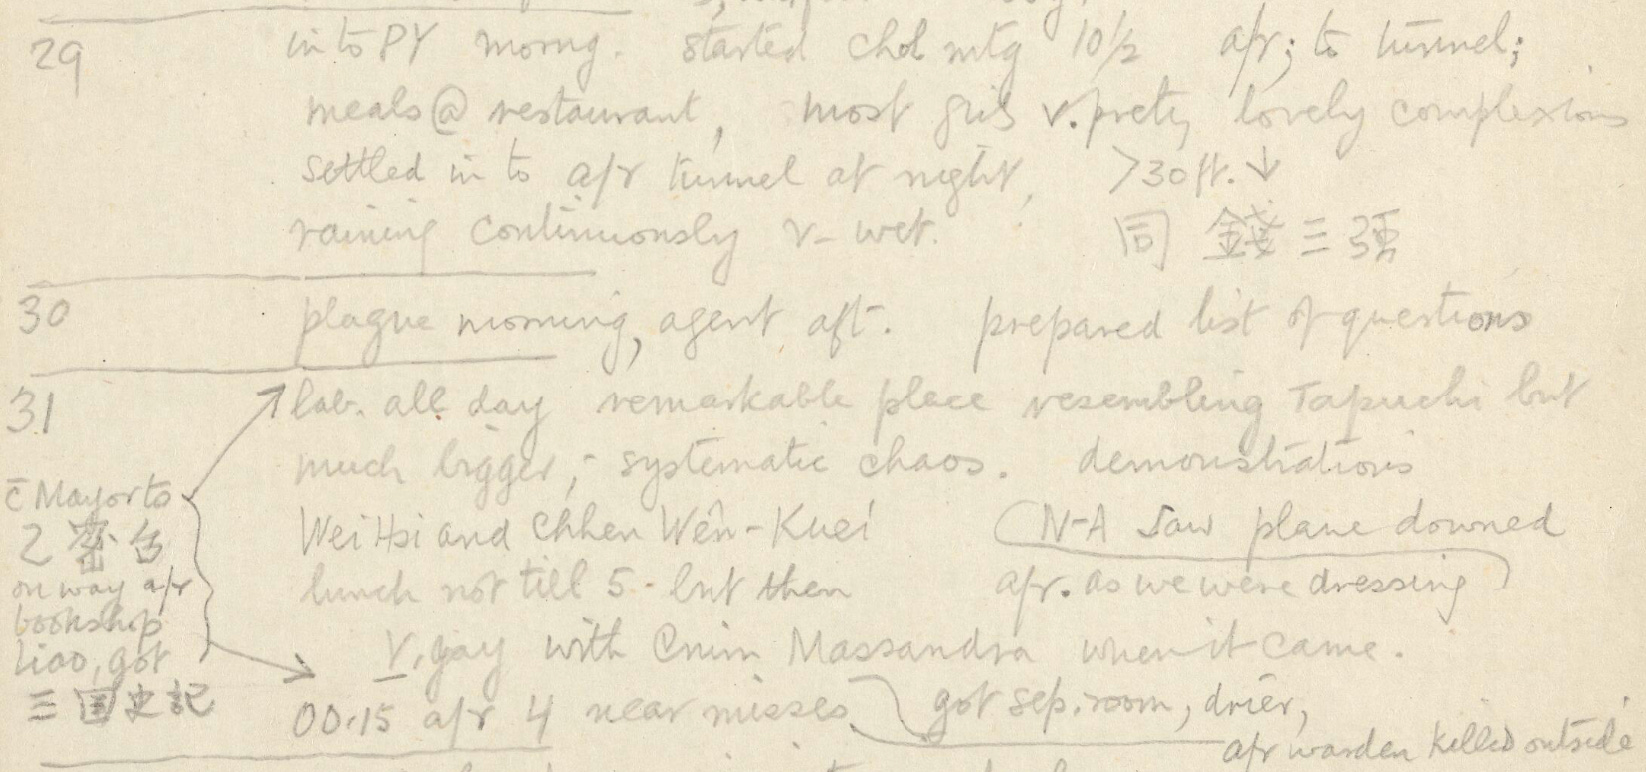 29 into PY morng. started chol mtg 10½ a/r; to tunnel;
meals @ restaurant, most girls v. pretty, lovely complexions
settled in to a/r tunnel at night, >30 ft. ↓
raining continuously v- wet. 同 錢三強
30 plague morning, agent aft. prepared list of questions
31 lab. all day remarkable place resembling Tapuchi but
much bigger; - systematic chaos. demonstrations
Wei Hsi and Chhen Wên-Kuei (N-A saw plane downed
lunch not till 5 - but then a/r. as we were dressing)
V. gay with Crim Massandra when it came.
00.15 a/r 4 near misses got sep. room, drier,
a/r warden killed outside
c̄ Mayor to
乙密台
on way a/r
bookshop
Liao, got
三国史記